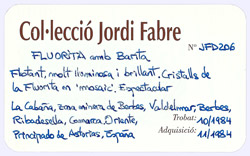 Col·lecció Jordi Fabre
Nº JFD206
FLUORITA amb Barita
Flotant, molt lluminosa i brillant. Cristalls de
la Fluorita en "mosaic". Espectacular
La Cabaña, zona minera de Berbes, Valdelmar, Berbes,
Ribadesella, Comarca Oriente,
Principado de Asturias, España
Trobat: 10/1984
Adquisició: 11/1984